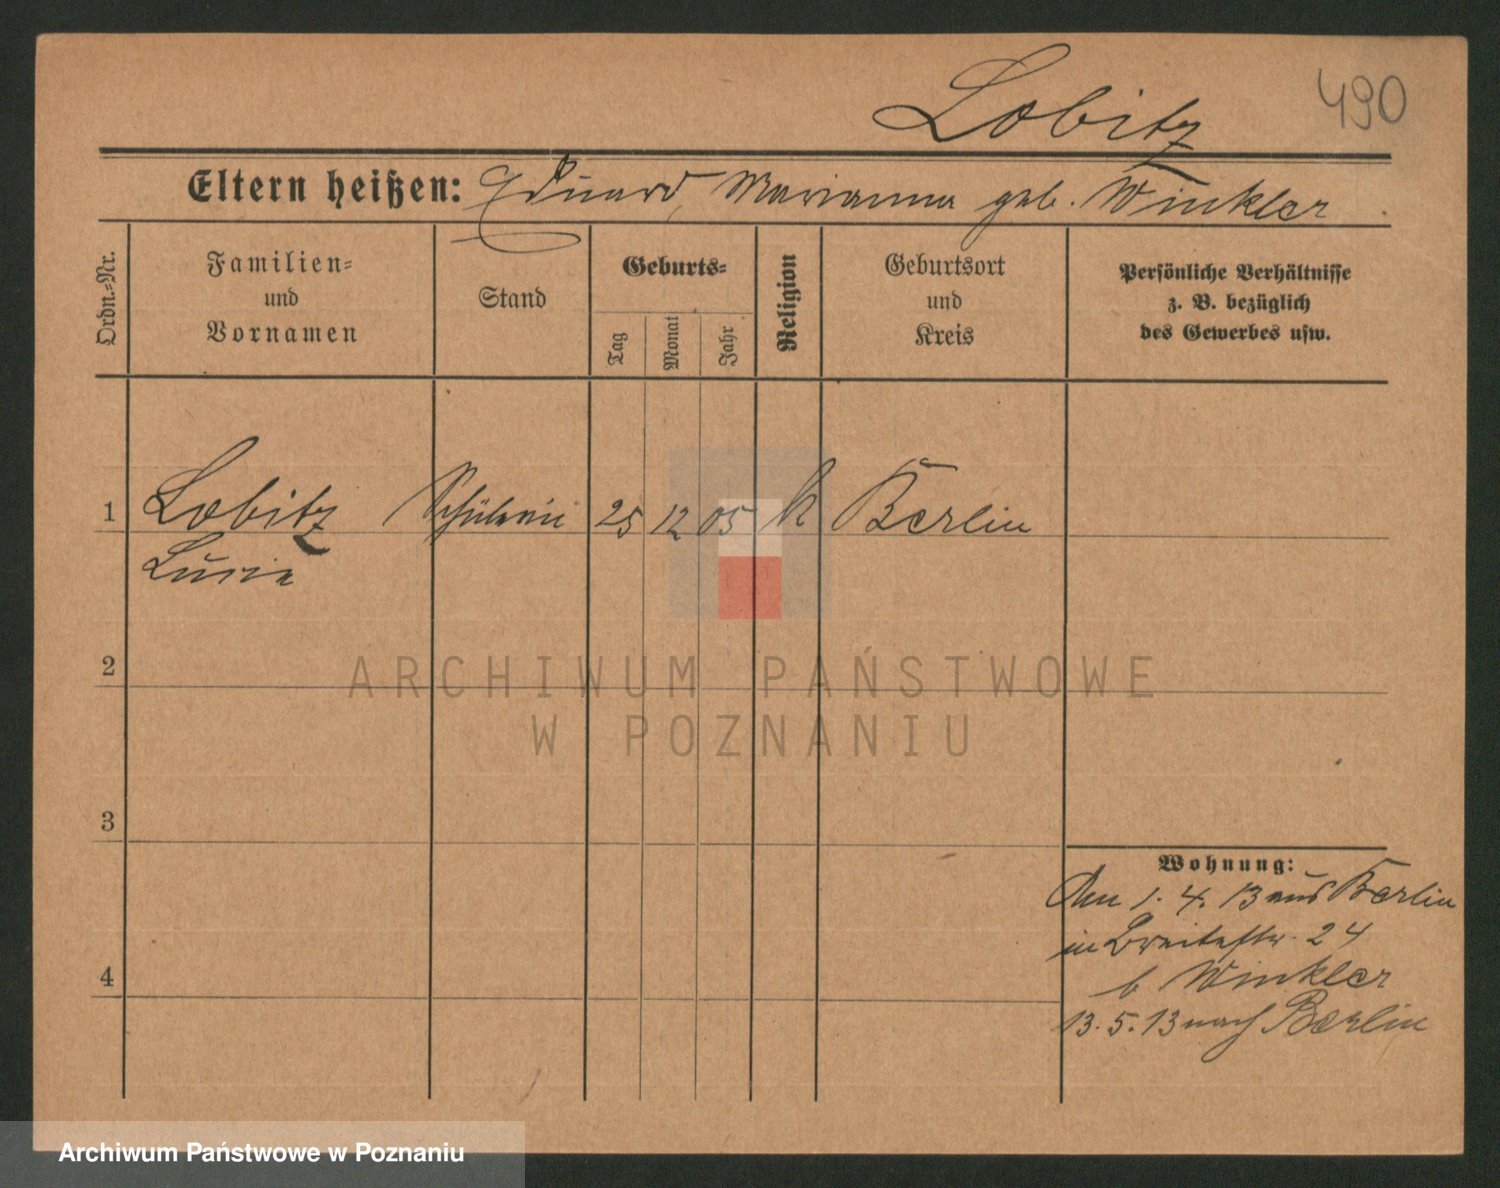 Lobitz
490
Eltern heißen: Eduard, Marianna geb. Winkler
Ordn.-Nr.
Familien-
und
Vornamen
Stand
Geburts-
Tag
Monat
Jahr
Religion
Geburtsort
und
Kreis
Persönliche Verhältnisse
z. B. bezüglich
des Gewerbes usw.
1 Lobitz Schülerin 25 12 05 k Berlin
2
3
4
Wohnung:
Am 1. 4. 13 aus Berlin
in Breitestr. 24
b Winkler
13. 5. 13 nach Berlin
ARCHIWUM PAŃSTWOWE
W POZNANIU
Archiwum Państwowe w Poznaniu